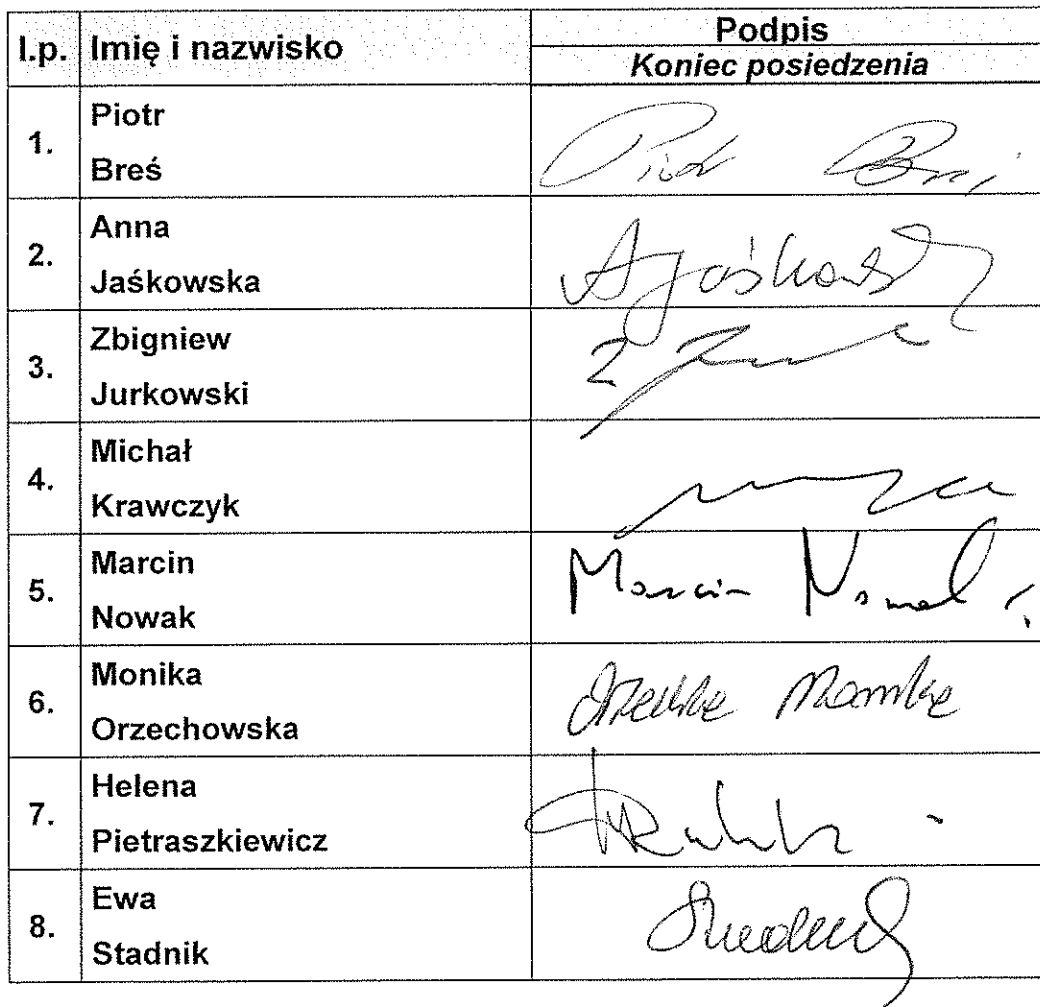 l.p. Imię i nazwisko Podpis
Koniec posiedzenia
1. Piotr
Breś
Piotr Breś
2. Anna
Jaśkowska
A Jaśkowska
3. Zbigniew
Jurkowski
Z
4. Michał
Krawczyk
5. Marcin
Nowak
Marcin Nowak
6. Monika
Orzechowska
Monika
7. Helena
Pietraszkiewicz
8. Ewa
Stadnik